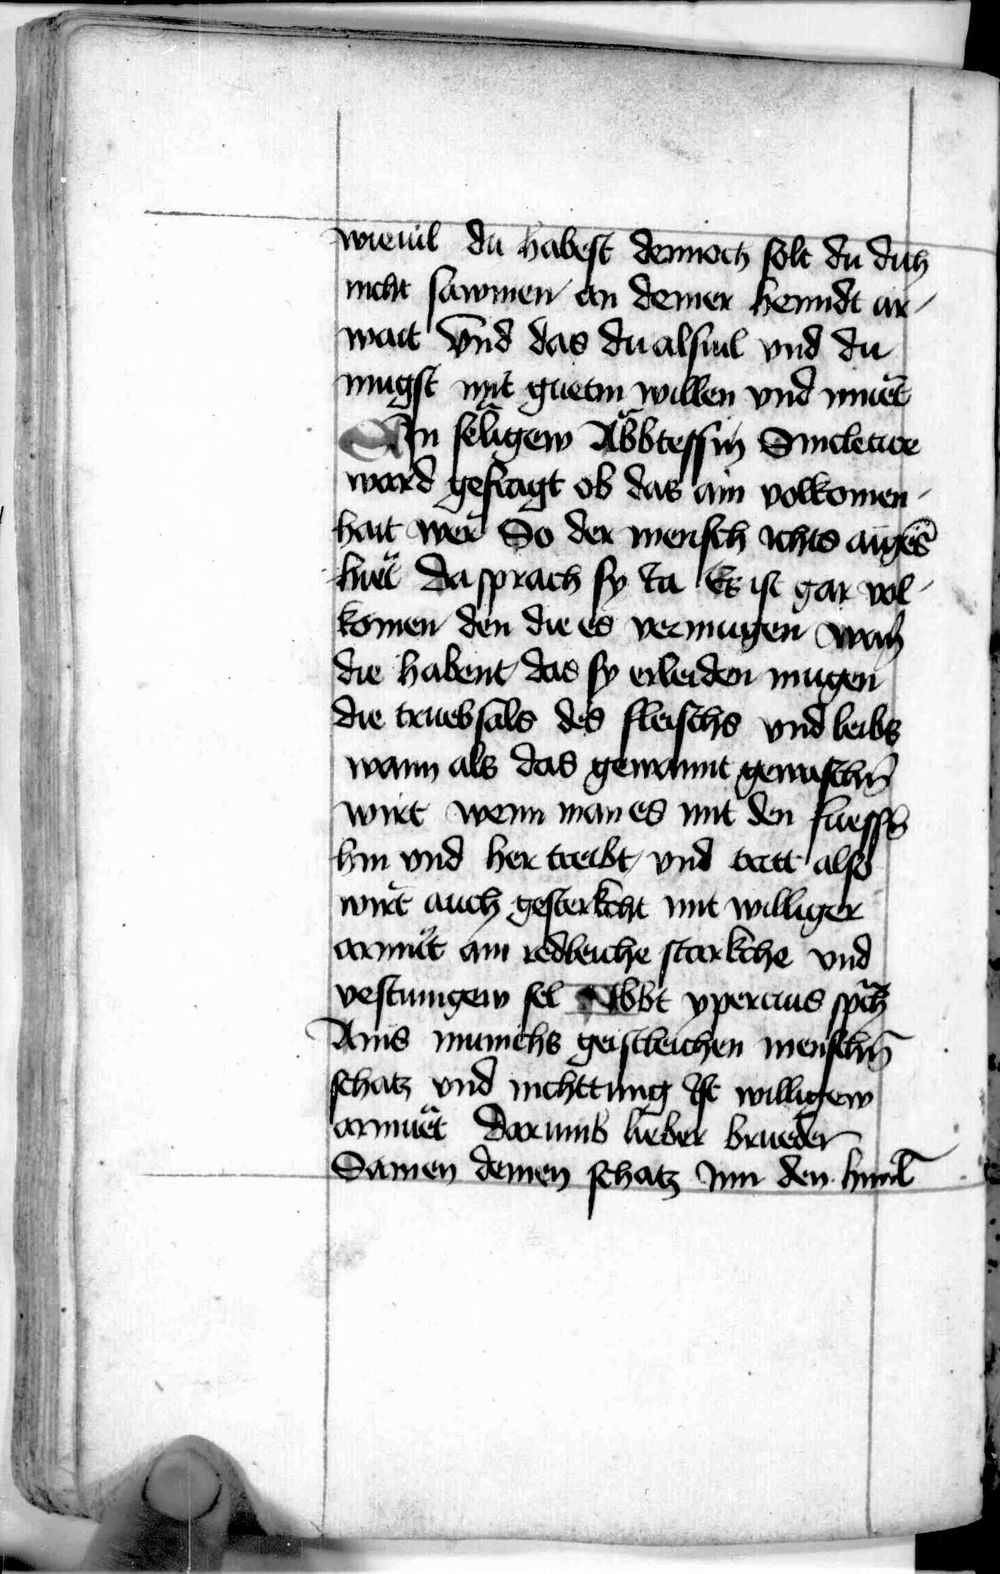 wieuil du habest dennoch solt du dich
nicht sawmen an deiner henndt ar-
wait Vnd das du alsuil vnd du
mugst mit guetm willen vnd muet
Ain seligew Abbtessin Sincletice
ward gefragt ob das ain volkomen-
hait wer So der mensch ichts aiges̄
hiet Da sprach sy Ia Es ist gar vol-
komen den die es vermugen wan̄
die habent das sy erleiden mugen
die truebsals des fleischs vnd leibs
wann als das gewannt gewaschn̄
wirt wenn man es mit den fuessn̄
hin vnd her treibt vnd tritt also
wirt auch gesterkcht mit williger
armuet ain redleiche starkche vnd
vestunigew sel Abbt yperctius spch̄
Ains munichs geistleichen menschn̄
schatz vnd nichttung Ist willigew
armuet Darumb lieber brueder
Samen deinen schatz Inn den himl̄